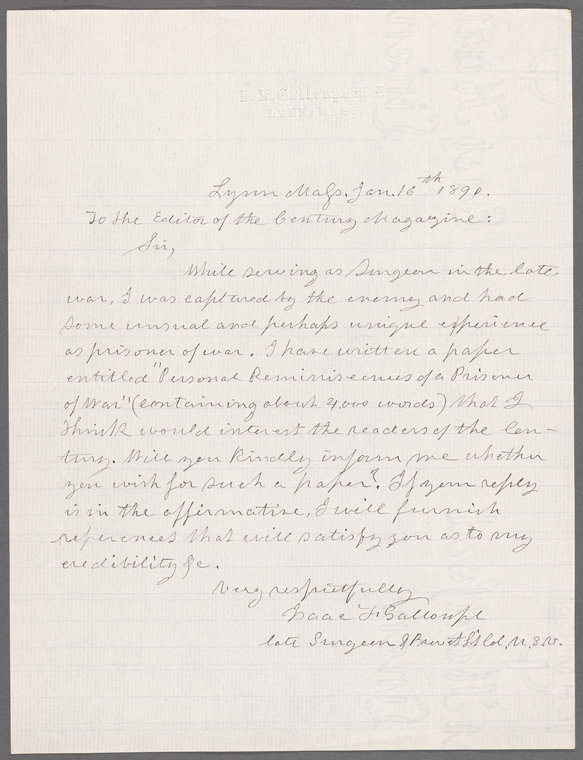 I. F. Galloupe, M.D.
LYNN, MASS.
Lynn Mass. Jan. 16th 1890.
To the Editor of the Century Magazine:
Sir,
While serving as Surgeon in the late
war, I was captured by the enemy and had
some unusual and perhaps unique experience
as prisoner of war. I have written a paper
entitled "Personal Reminiscences of a Prisoner
of War" (containing about 4,000 words) that I
think would interest the readers of the Cen-
tury. Will you kindly inform me whether
you wish for such a paper? If your reply
is in the affirmative, I will furnish
references that will satisfy you as to my
credibility &c.
Very respectfully
Isaac F. Galloupe
late Surgeon & Brevet Lt Col. U.S.V.